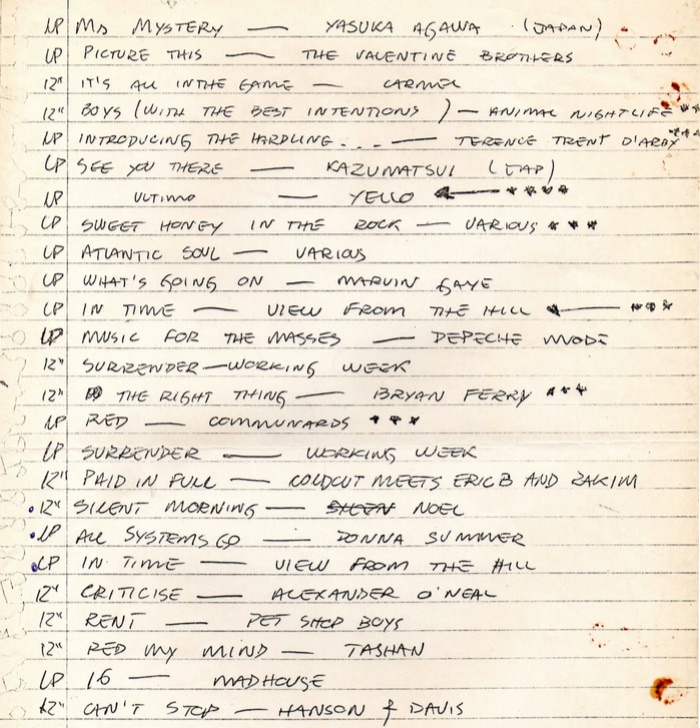 LP MS MYSTERY — YASUKA AGAWA (JAPAN)
LP PICTURE THIS — THE VALENTINE BROTHERS
12" IT'S ALL IN THE GAME — CARMEL
12" BOYS (WITH THE BEST INTENTIONS) — ANIMAL NIGHTLIFE **
LP INTRODUCING THE HARDLINE... — TERENCE TRENT D'ARBY ***
LP SEE YOU THERE — KAZUMATSUI (JAP)
LP ULTIMO — YELLO ← ****
LP SWEET HONEY IN THE ROCK — VARIOUS ***
LP ATLANTIC SOUL — VARIOUS
LP WHAT'S GOING ON — MARVIN GAYE
LP IN TIME — VIEW FROM THE HILL ← ***
LP MUSIC FOR THE MASSES — DEPECHE MODE
12" SURRENDER — WORKING WEEK
12" THE RIGHT THING — BRYAN FERRY ***
LP RED — COMMUNARDS ***
LP SURRENDER — WORKING WEEK
12" PAID IN FULL — COLDCUT MEETS ERIC B AND RAKIM
12" SILENT MORNING — NOEL
LP ALL SYSTEMS GO — DONNA SUMMER
LP IN TIME — VIEW FROM THE HILL
12" CRITICISE — ALEXANDER O'NEAL
12" RENT — PET SHOP BOYS
12" RED MY MIND — TASHAN
LP 16 — MADHOUSE
12" CAN'T STOP — HANSON & DAVIS